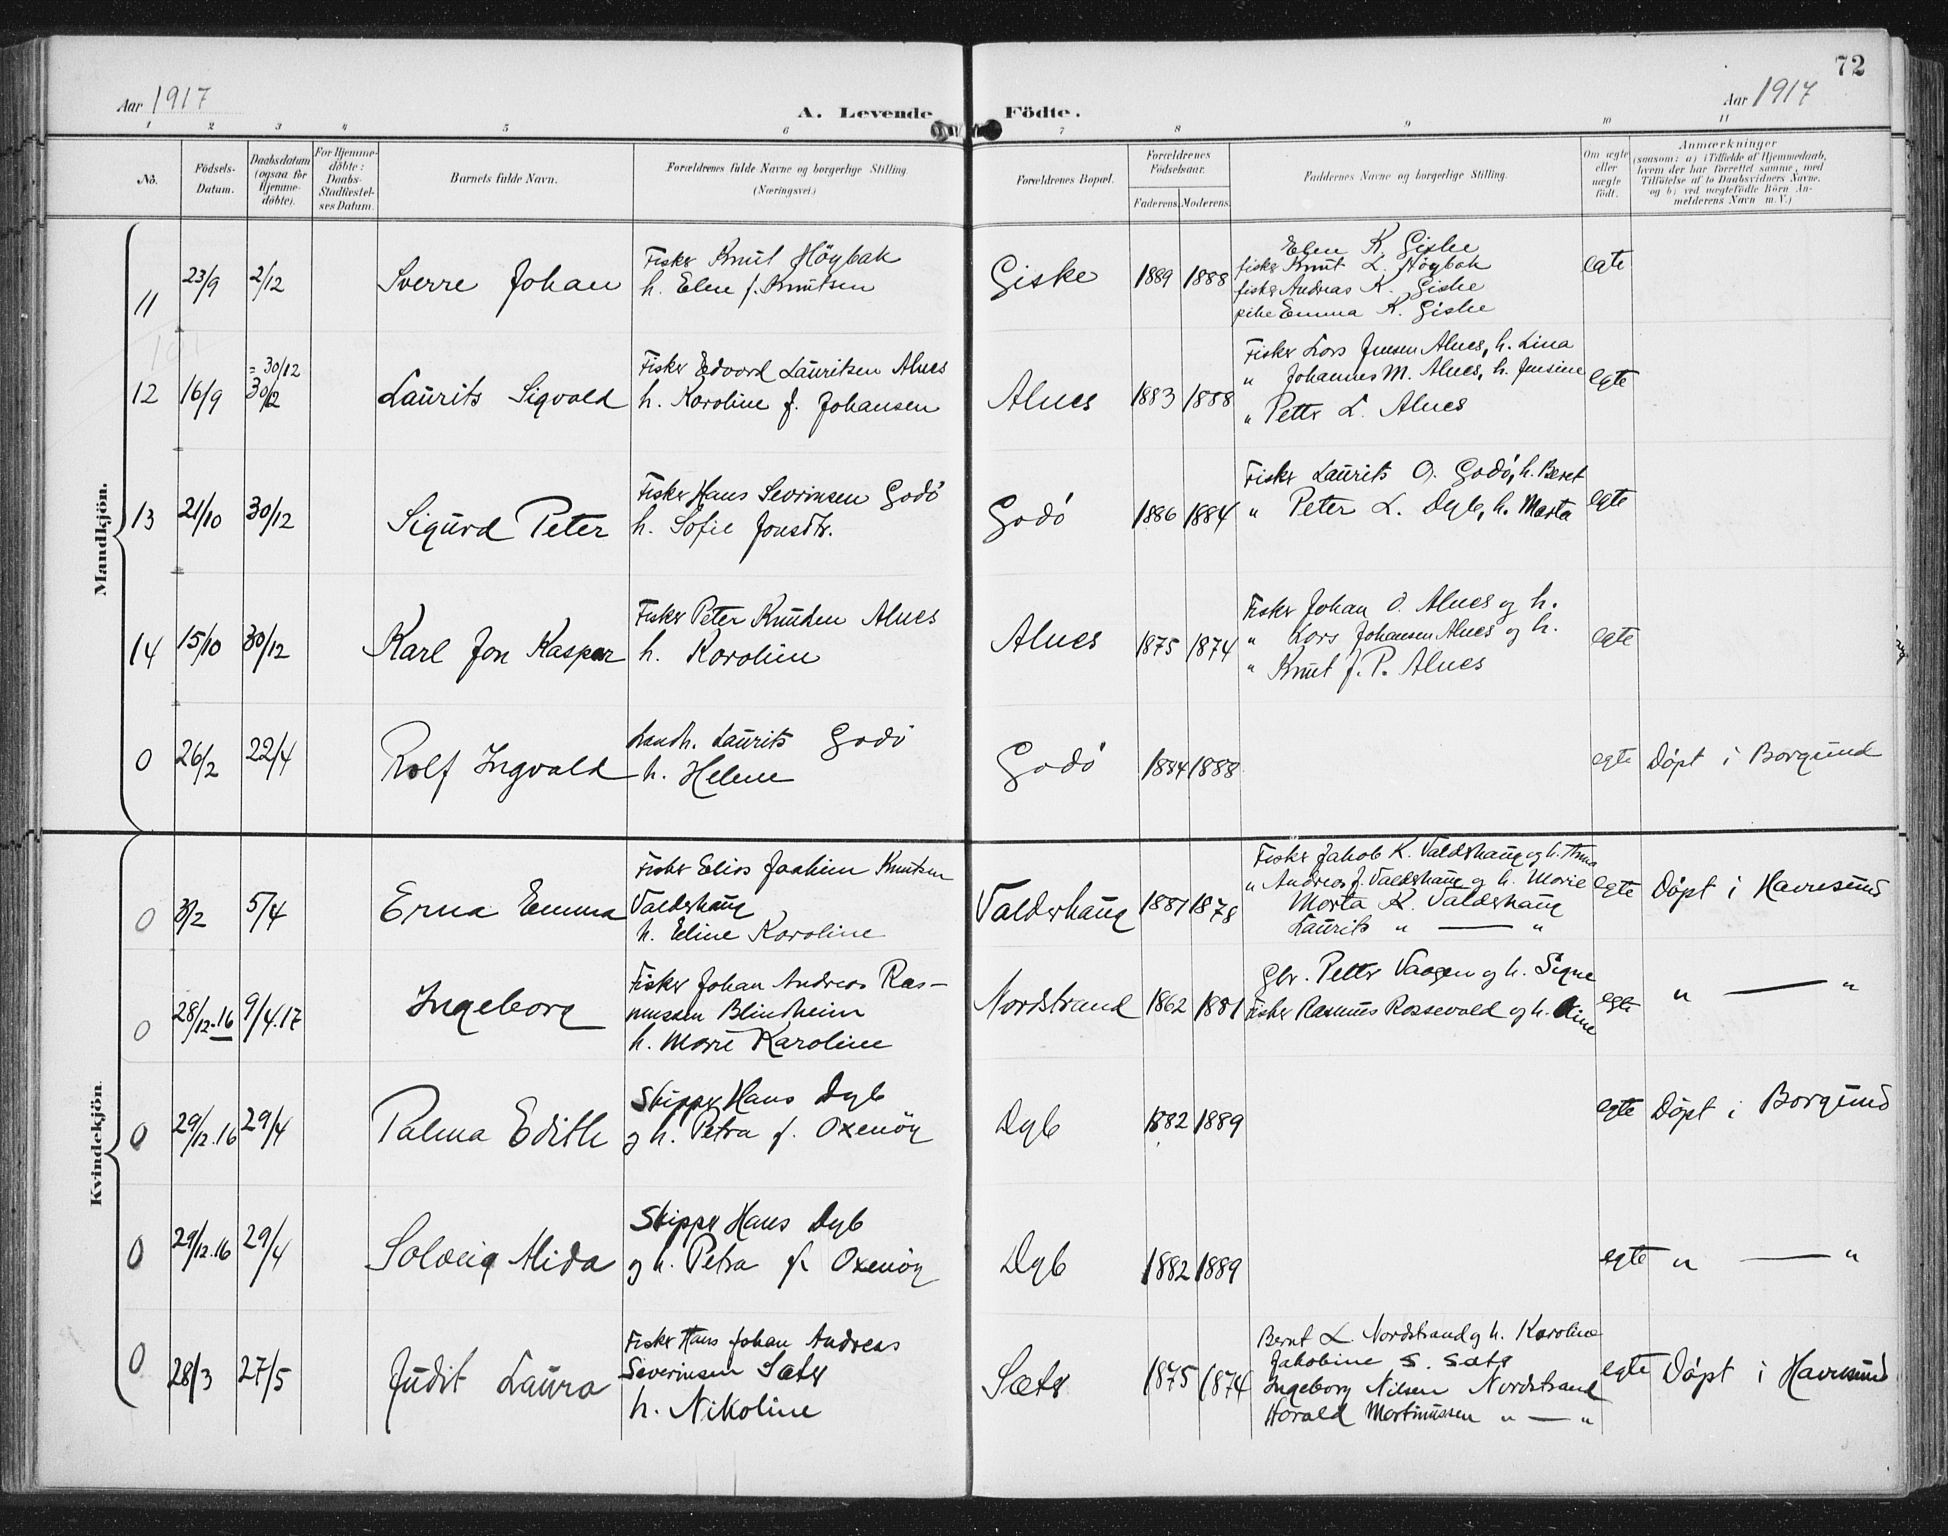 72
Aar 1917
A. Levende
Födte.
Aar 1917
1 2 3 4 5 6 7 8 9 10 11
No.
Födsels-
Datum.
Daabsdatum
(ogsaa for
Hjemme-
döbte).
For Hjemme-
döbte:
Daabs-
Stadfæstel-
ses Datum.
Barnets fulde Navn.
Forældrenes fulde Navne og borgerlige Stilling.
(Næringsvei.)
Forældrenes Bopæl.
Forældrenes
Födselsaar.
Faderens.
Moderens.
Faddernes Navne og borgerlige Stilling.
Om ægte
eller
uægte
födt.
Anmærkninger
(saasom: a) i Tilfælde af Hjemmedaab,
hvem der har forrettet samme, med
Tilföielse af to Daabsvidners Navne,
og b) ved uægtefödte Börn An-
melderens Navn m. V.)
Mandkjön.
11 23/9 2/12 Sverre Johan
Fisker Knut Höybak
h. Elen f. Knutsen
Giske 1889 1888
Elen K. Giske
fisker Knut L. Höybak
fisker Andreas K. Giske
pike Emma K. Giske
egte
12 16/9 30/12
= 30/12
Laurits Sigvald
Fisker Edvard Lauritsen Alnes
h. Karoline f. Johansen
Alnes 1883 1888
Fisker Lars Jensen Alnes, h. Lina
" Johannes M. Alnes, h. Jensine
" Petter L. Alnes
egte
13 21/10 30/12 Sigurd Peter
Fisker Hans Sevrinsen Godö
h. Sofie Jonsdtr.
Godö 1886 1884
Fisker Laurits O. Godö, h. Beret
" Peter L. Dyb, h. Marta
egte
14 15/10 30/12 Karl Jon Kasper
Fisker Peter Knudsen Alnes
h. Karoline
Alnes 1875 1874
Fisker Johan O. Alnes og h.
" Lars Johansen Alnes og h.
" Knut J. P. Alnes
egte
0 26/2 22/4 Rolf Ingvald
Landh. Laurits Godö
h. Helene
Godö 1884 1888
egte Döpt i Borgund
Kvindekjön.
0 3/2 5/4 Erna Emma
Fisker Elias Joakim Knutsen
Valderhaug
h. Eline Karoline
Valderhaug 1881 1878
Fisker Jakob K. Valderhaug og h. Anna
" Andreas J. Valderhaug og h. Marie
Marta K. Valderhaug
Laurits " — "
egte Döpt i Havnsund
0 28/12.16 9/4.17 Ingeborg
Fisker Johan Andreas Ras-
mussen Blindheim
h. Marie Karoline
Nordstrand 1862 1881
Gbr. Petter Vaagen og h. Signe
Fisker Rasmus Rossevold og h. Oline
egte " — "
0 29/12.16 29/4 Palma Edith
Skipper Hans Dyb
og h. Petra f. Oxenöy
Dyb 1882 1889
egte Döpt i Borgund
0 29/12.16 29/4 Solveig Alida
Skipper Hans Dyb
og h. Petra f. Oxenöy
Dyb 1882 1889
egte " — "
0 28/3 27/5 Judit Laura
Fisker Hans Johan Andreas
Severinsen Sæter
h. Nikoline
Sæter 1875 1874
Bernt L. Nordstrand og h. Karoline
Jakobine S. Sæter
Ingeborg Nilsen Nordstrand
Harald Martinussen " — "
egte Döpt i Havnsund